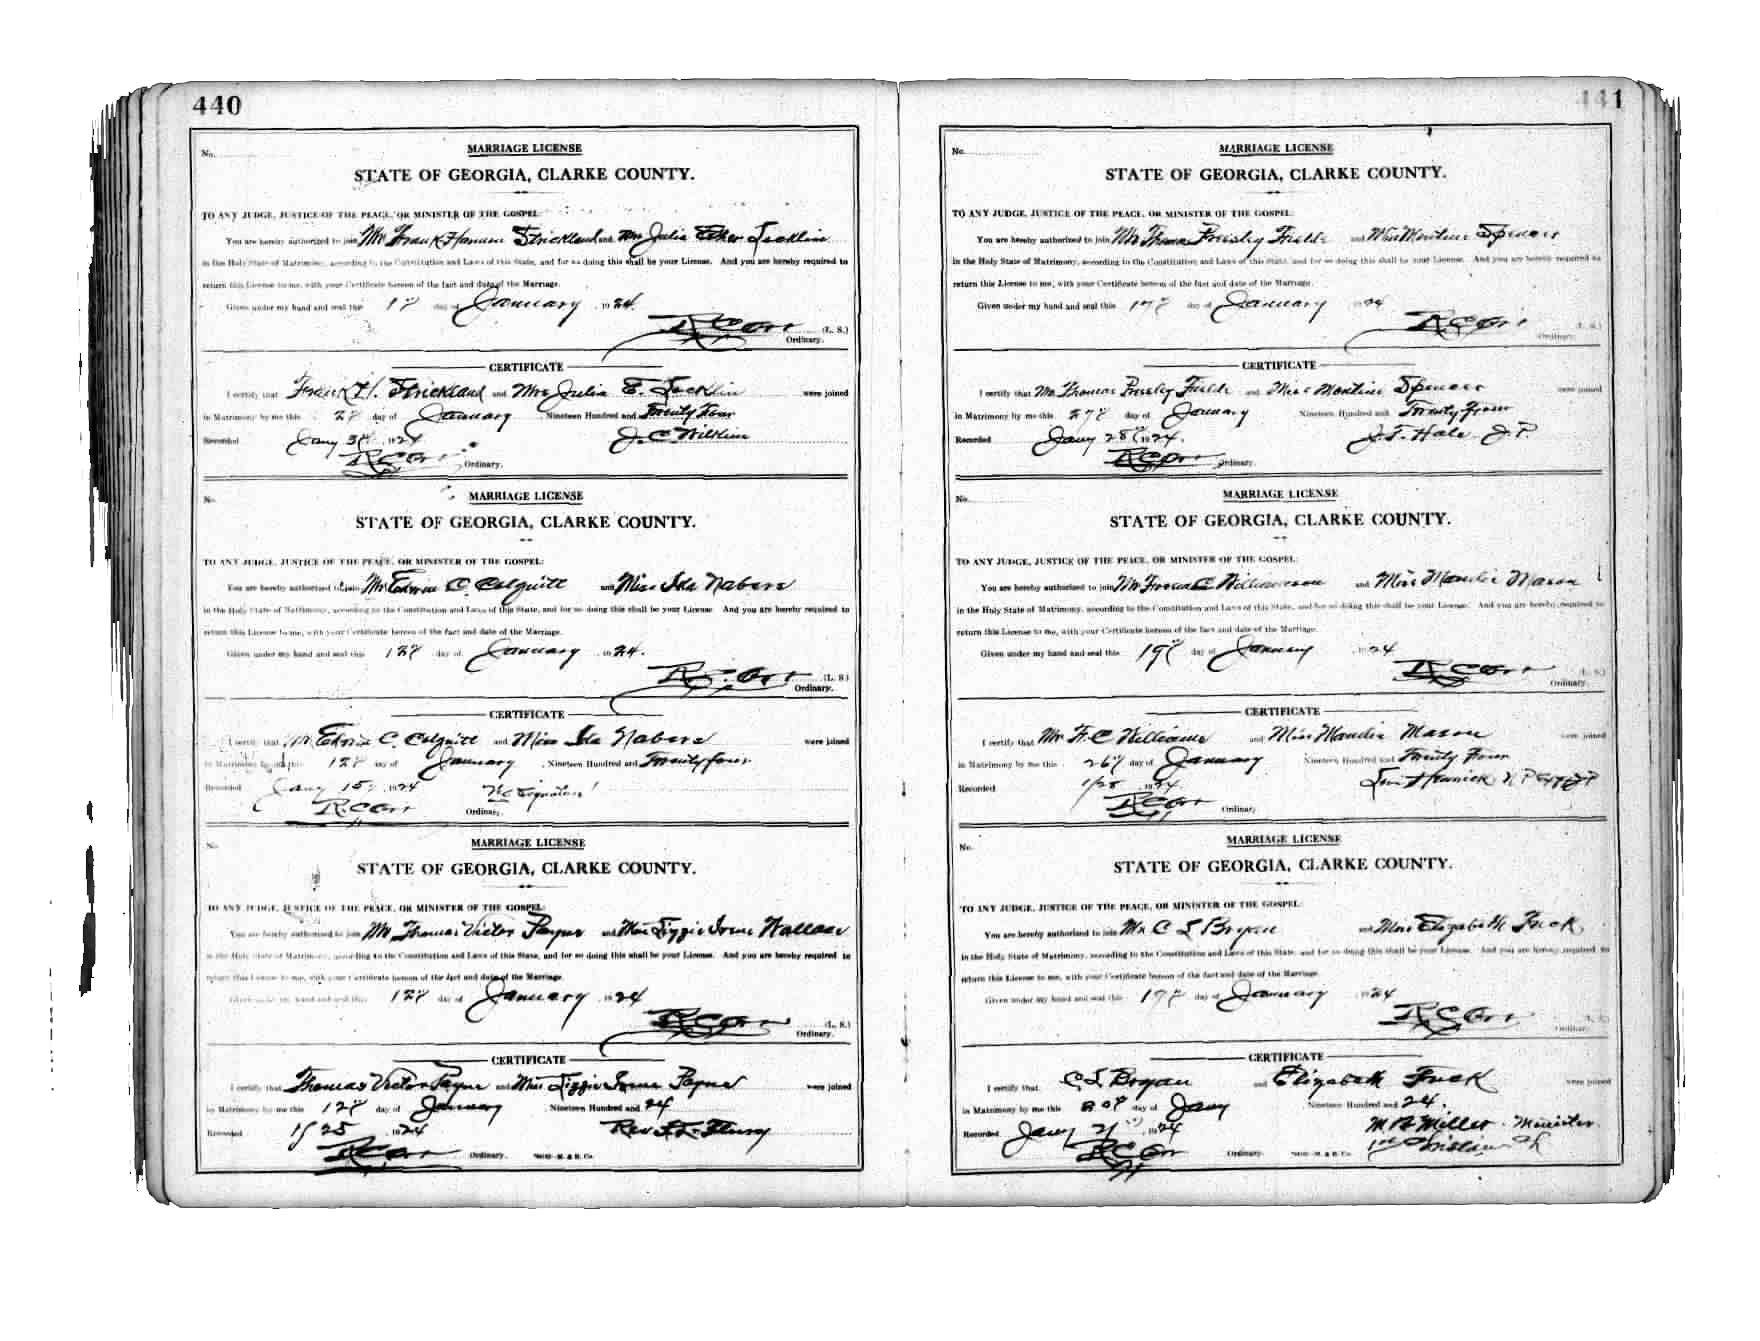 440
No.
MARRIAGE LICENSE
STATE OF GEORGIA, CLARKE COUNTY.
TO ANY JUDGE, JUSTICE OF THE PEACE, OR MINISTER OF THE GOSPEL:
You are hereby authorized to join Mr Frank Strickland and Mrs Julia
in the Holy State of Matrimony, according to the Constitution and Laws of this State, and for so doing this shall be your License. And you are hereby required to
return this License to me, with your Certificate hereon of the fact and date of the Marriage.
Given under my hand and seal this day of January 1924.
R C Orr (L. S.)
Ordinary.
CERTIFICATE
I certify that Frank H. Strickland and Mrs Julia E. were joined
in Matrimony by me this day of January Nineteen Hundred and Twenty Four
Recorded Jany 1924 J. C. Wilkins
R C Orr Ordinary.
No.
MARRIAGE LICENSE
STATE OF GEORGIA, CLARKE COUNTY.
TO ANY JUDGE, JUSTICE OF THE PEACE, OR MINISTER OF THE GOSPEL:
You are hereby authorized to join Mr Edwin C. Colquitt and Miss Ida Nabers
in the Holy State of Matrimony, according to the Constitution and Laws of this State, and for so doing this shall be your License. And you are hereby required to
return this License to me, with your Certificate hereon of the fact and date of the Marriage.
Given under my hand and seal this 12th day of January 1924.
R. C. Orr (L. S.)
Ordinary.
CERTIFICATE
I certify that Mr Edwin C. Colquitt and Miss Ida Nabers were joined
in Matrimony by me this 12th day of January Nineteen Hundred and Twenty four
Recorded Jany 15th 1924 No Signature!
R. C Orr Ordinary.
No.
MARRIAGE LICENSE
STATE OF GEORGIA, CLARKE COUNTY.
TO ANY JUDGE, JUSTICE OF THE PEACE, OR MINISTER OF THE GOSPEL:
You are hereby authorized to join Mr Thomas Victor Payne and Miss Lizzie Irene Wallace
in the Holy State of Matrimony, according to the Constitution and Laws of this State, and for so doing this shall be your License. And you are hereby required to
return this License to me, with your Certificate hereon of the fact and date of the Marriage.
Given under my hand and seal this 12th day of January 1924
R C Orr (L. S.)
Ordinary.
CERTIFICATE
I certify that Thomas Victor Payne and Miss Lizzie Irene Payne were joined
in Matrimony by me this 12th day of January Nineteen Hundred and 24
Recorded 1/25 1924 Rev
R C Orr Ordinary.
441
No.
MARRIAGE LICENSE
STATE OF GEORGIA, CLARKE COUNTY.
TO ANY JUDGE, JUSTICE OF THE PEACE, OR MINISTER OF THE GOSPEL:
You are hereby authorized to join Mr Thomas Presley Fields and Miss Montine Spencer
in the Holy State of Matrimony, according to the Constitution and Laws of this State, and for so doing this shall be your License. And you are hereby required to
return this License to me, with your Certificate hereon of the fact and date of the Marriage.
Given under my hand and seal this 17th day of January 1924
R C Orr (L. S.)
Ordinary.
CERTIFICATE
I certify that Mr Thomas Presley Fields and Miss Montine Spencer were joined
in Matrimony by me this 27th day of January Nineteen Hundred and Twenty Four
Recorded Jany 28th 1924. J. T. Hale J. P.
R C Orr Ordinary.
No.
MARRIAGE LICENSE
STATE OF GEORGIA, CLARKE COUNTY.
TO ANY JUDGE, JUSTICE OF THE PEACE, OR MINISTER OF THE GOSPEL:
You are hereby authorized to join Mr C Williamson and Miss Maudie Mason
in the Holy State of Matrimony, according to the Constitution and Laws of this State, and for so doing this shall be your License. And you are hereby required to
return this License to me, with your Certificate hereon of the fact and date of the Marriage.
Given under my hand and seal this 19th day of January 1924
R C Orr (L. S.)
Ordinary.
CERTIFICATE
I certify that Mr F. C Williams and Miss Maudie Mason were joined
in Matrimony by me this 26th day of January Nineteen Hundred and Twenty Four
Recorded 1/28 1924.
R C Orr Ordinary
No.
MARRIAGE LICENSE
STATE OF GEORGIA, CLARKE COUNTY.
TO ANY JUDGE, JUSTICE OF THE PEACE, OR MINISTER OF THE GOSPEL:
You are hereby authorized to join Mr C L Bryan and Miss Elizabeth
in the Holy State of Matrimony, according to the Constitution and Laws of this State, and for so doing this shall be your License. And you are hereby required to
return this License to me, with your Certificate hereon of the fact and date of the Marriage.
Given under my hand and seal this day of January 1924
R C Orr (L. S.)
Ordinary.
CERTIFICATE
I certify that C L Bryan and Elizabeth were joined
in Matrimony by me this 20th day of Jany Nineteen Hundred and 24.
Recorded Jany 1924 Miller Minister
R C Orr Ordinary. 1st Christian Ch